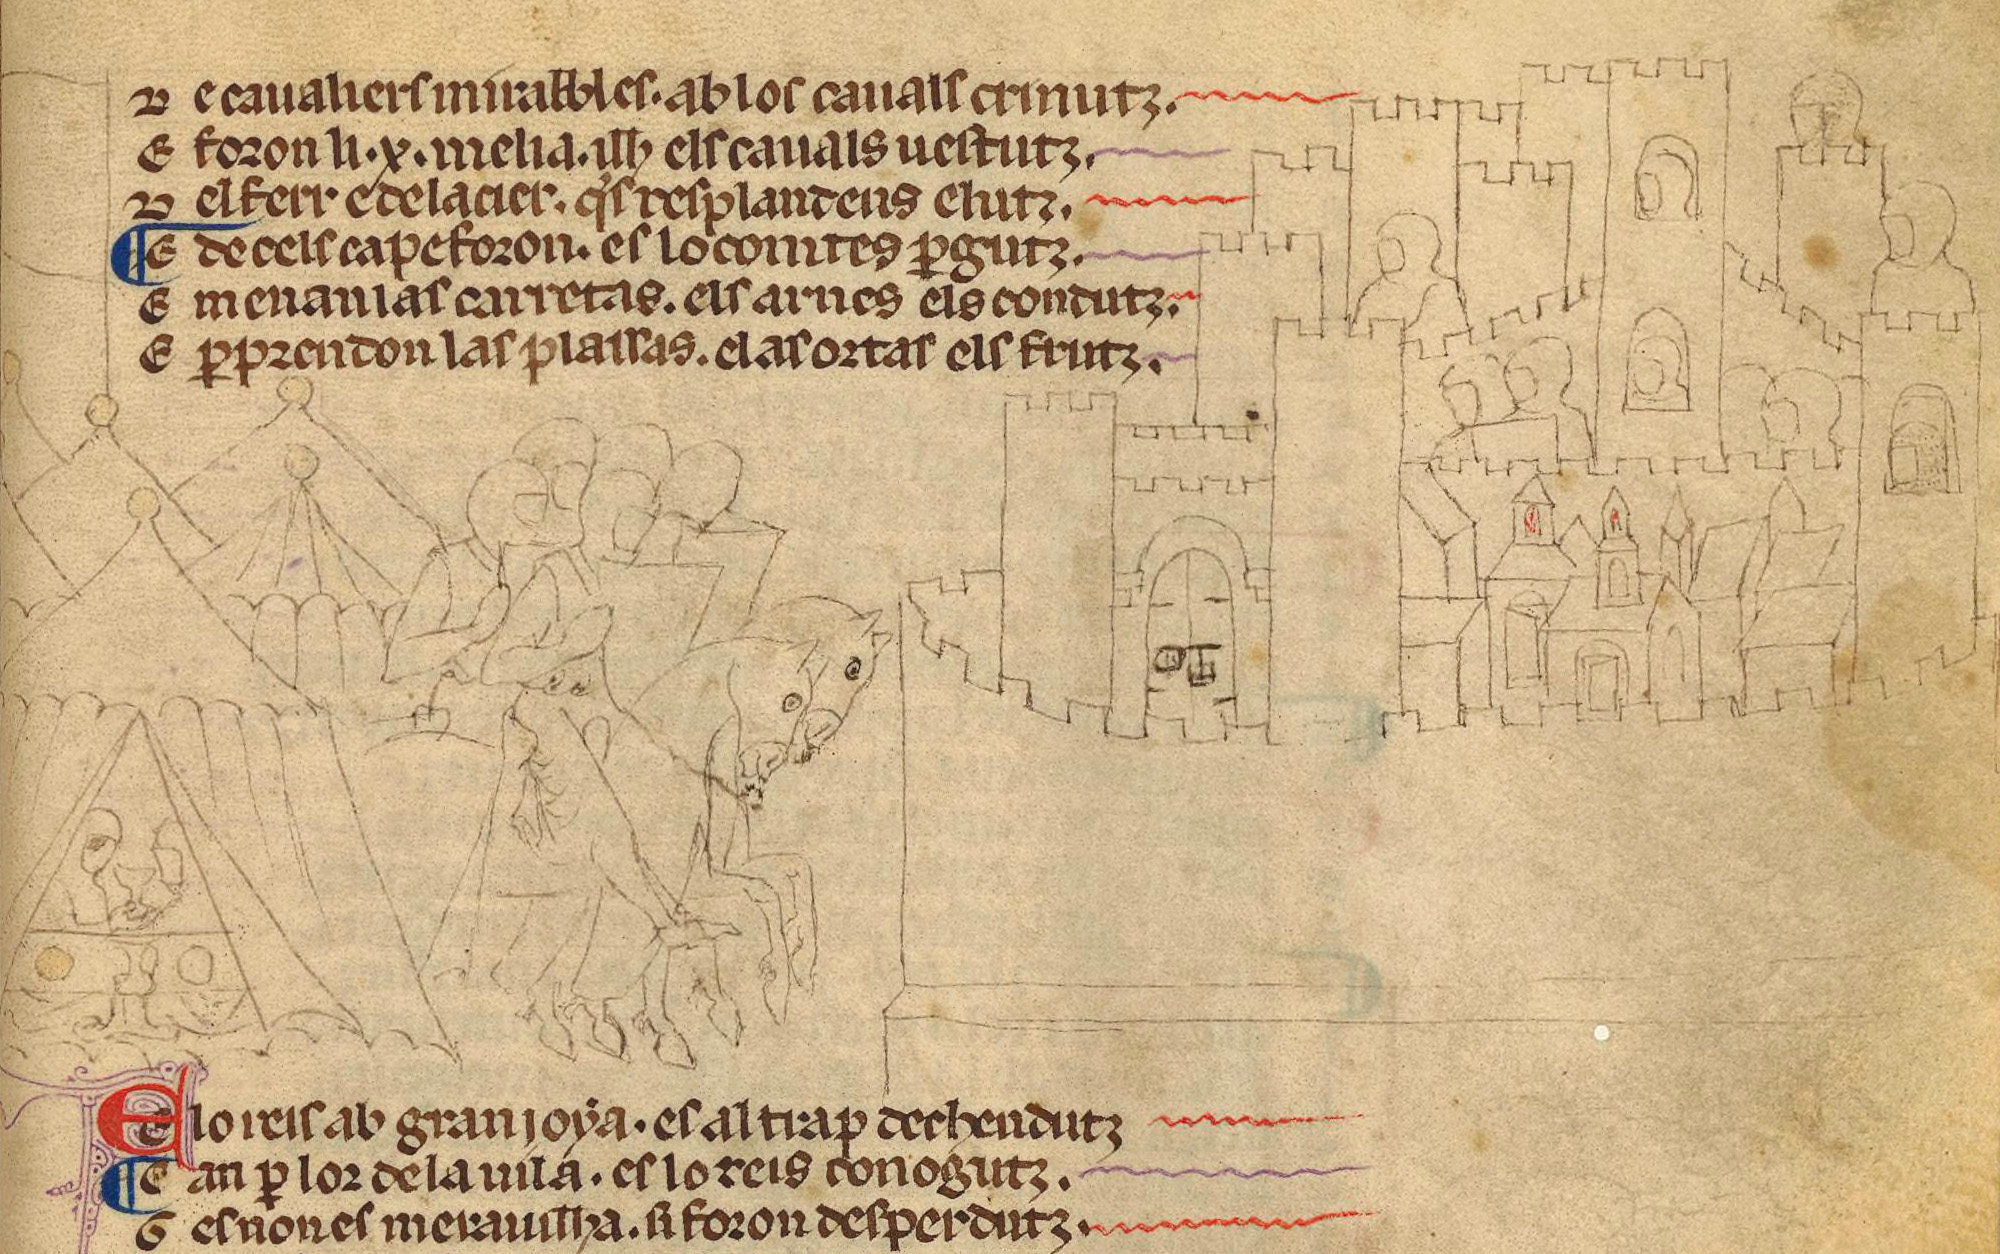 D e caualiers mirables. ab los cauals crinutz.
E foron li .x. melia. els cauals uestutz.
D el ferr e del acier. q's resplandens e lutz.
E de cels cap e foron. es lo comtes pgutz.
E menan las carretas. els arnes els condutz.
E pprendon las plassas. e las ortas els frutz.
E lo reis ab gran joya. es al trap dechendutz
E an p lor de la uila. es lo reis conogutz.
G es non es merauilha. si foron desperdutz.